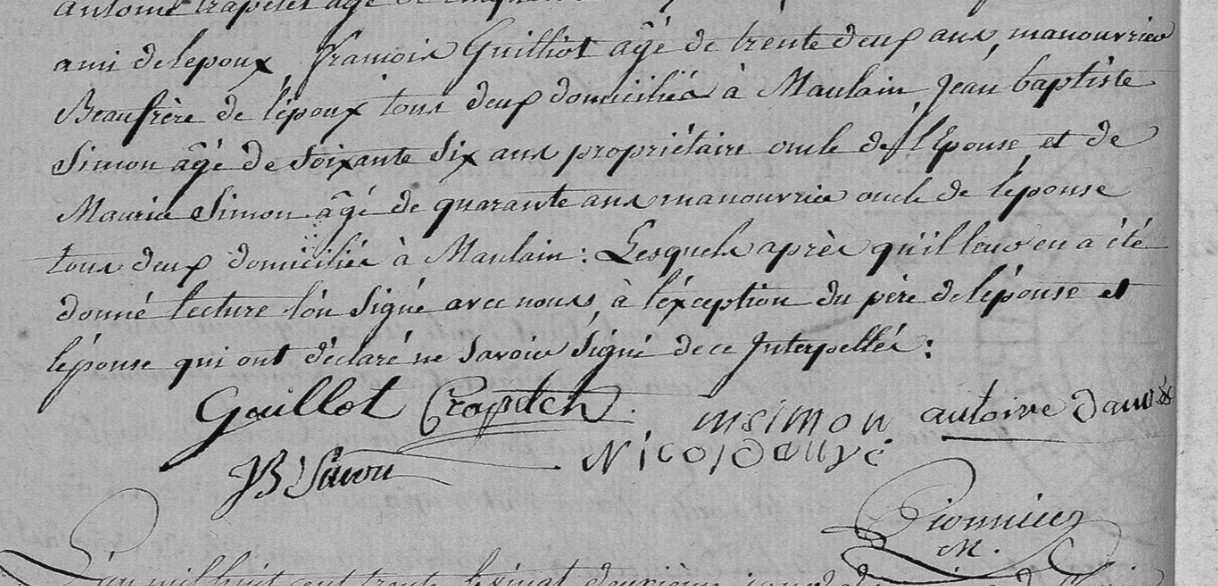 antoine trapetet agé de cinq
ami de lepoux, françois Guilliot âgé de trente deux ans, manouvrier
Beaufrère de l'époux tous deux domiciliés à Maulain, Jean baptiste
Simon âgé de soixante six ans propriétaire oncle de l'Epouse et de
Maurice Simon âgé de quarante ans manouvrier oncle de l'épouse
tous deux domiciliés à Maulain: Lesquels après qu'il leur en a été
donné lecture l'on signé avec nous, à l'éxception du père de lépouse et
lépouse qui ont déclaré ne savoir signé de ce Interpellés:
Guillot
msimon antoine
JB Simon
Pionnier
M.
L'an mil huit cent trente le vingt deuxième jour du